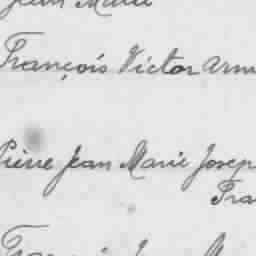 Jean Marie
François Victor Arm
Pierre Jean Marie Josep
Fra